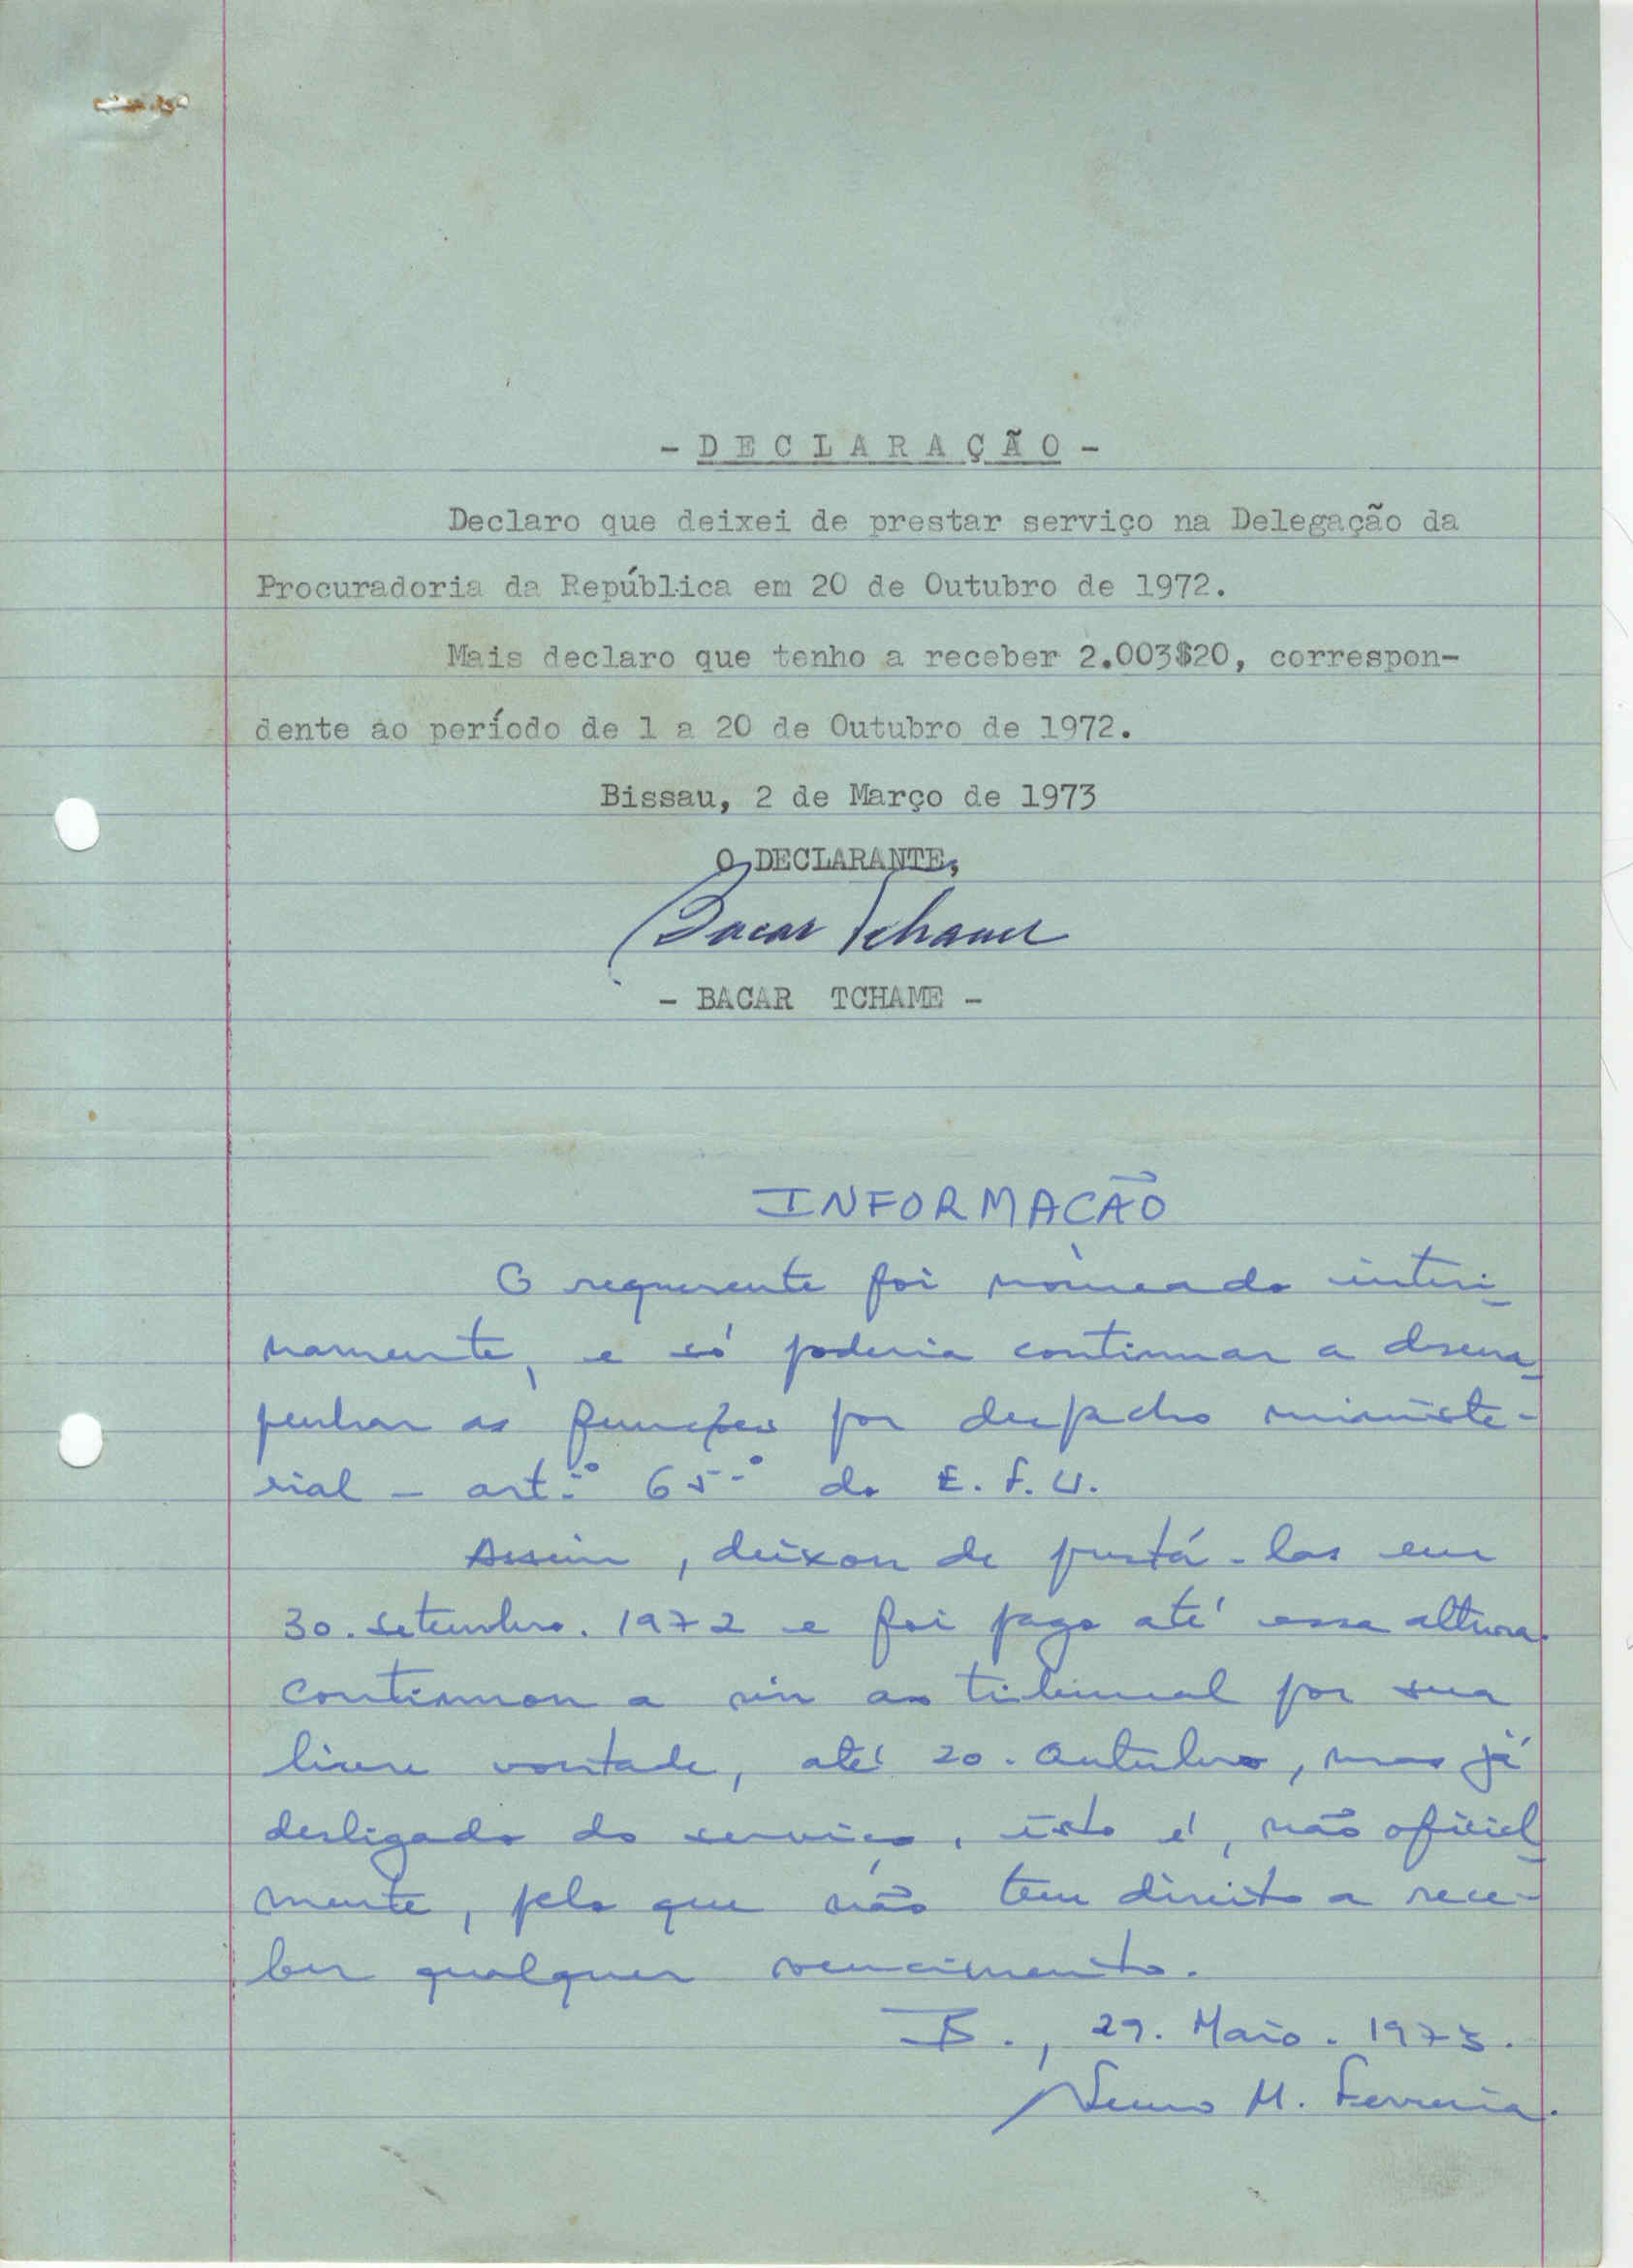 - DECLARAÇÃO -
Declaro que deixei de prestar serviço na Delegação da
Procuradoria da República em 20 de Outubro de 1972.
Mais declaro que tenho a receber 2.003$20, correspon-
dente ao período de 1 a 20 de Outubro de 1972.
Bissau, 2 de Março de 1973
O DECLARANTE,
Bacar Tchame
- BACAR TCHAME -
INFORMACÃO
O requerente foi nomeado interi-
namente, e só poderia continuar a desem-
penhar as funções por despacho ministe-
rial - art.º 65º do E.F.U.
Assim, deixou de prestá-las em
30.setembro.1972 e foi pago até essa altura.
Continuou a vir ao tribunal por sua
livre vontade, até 20.Outubro, mas já
desligado do serviço, isto é, não oficial-
mente, pelo que não tem direito a rece-
ber qualquer vencimento.
B., 29.Maio.1973.
Nuno M. Ferreira.